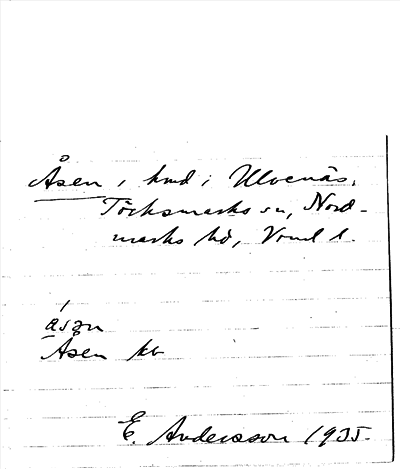 Åsen, hmd i Ulvenäs,
Töcksmarks sn, Nord-
marks hd, Vrml l.
åsən
Åsen kb
E. Andersson 1935.